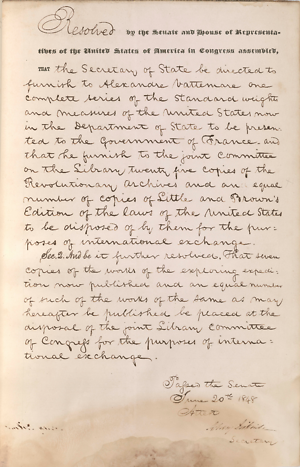 Resolved by the Senate and House of Representa-
tives of the United States of America in Congress assembled,
THAT the Secretary of State be directed to
furnish to Alexandre Vattemare one
complete series of the Standard weights
and measures of the United States now
in the Department of State to be presen-
ted to the Government of France. and
that he furnish to the joint Committee
on the Library twenty five copies of the
Revolutionary Archives and an equal
number of copies of Little and Brown's
Edition of the laws of the United States
to be disposed of by them for the pur-
poses of international exchange.
Sec. 2. And be it further resolved, That seven
copies of the works of the exploring expedi-
tion now published and an equal number
of such of the works of the same as may
hereafter be published be placed at the
disposal of the joint Library Committee
of Congress for the purposes of interna-
tional exchange.
Passed the Senate
June 20th 1848
Attest
Secretary